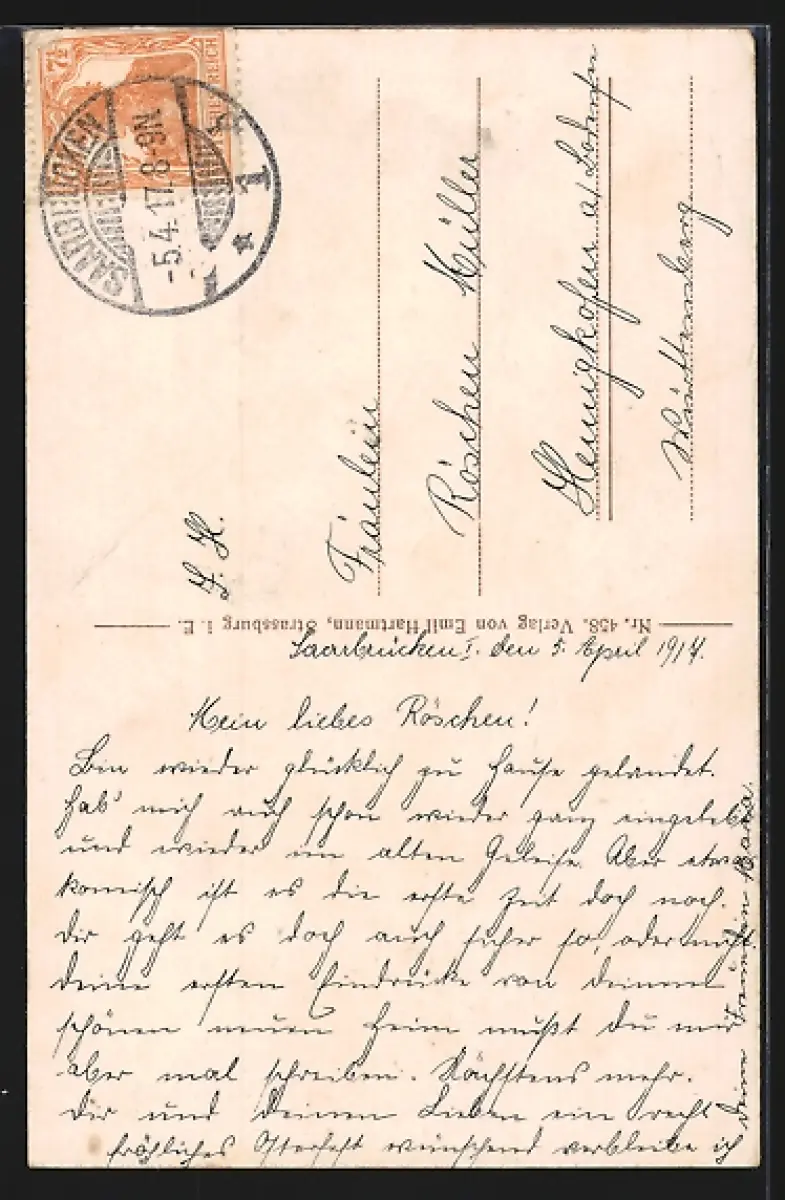 7½
DEUTSCHES REICH
SAARBRÜCKEN
-5.4.17.8-9N.
* 1
Fräulein
Röschen Müller
Hemigkofen a/ Bodensee
Württemberg
Nr. 458. Verlag von Emil Hartmann, Strassburg i. E.
Saarbrücken I. den 5. April 1917.
Mein liebes Röschen!
Bin wieder glücklich zu Hause gelandet.
Hab' mich auch schon wieder ganz eingelebt
und wieder im alten Geleise. Aber etwas
komisch ist es die erste Zeit doch noch.
Dir geht es doch auch sicher so, oder nicht.
Deine ersten Eindrücke von Deinem
schönen neuen Heim mußt Du mir
aber mal schreiben. Nächstens mehr.
Dir und Deinen Lieben ein recht
fröhliches Osterfest wünschend verbleibe ich
Deine Freundin